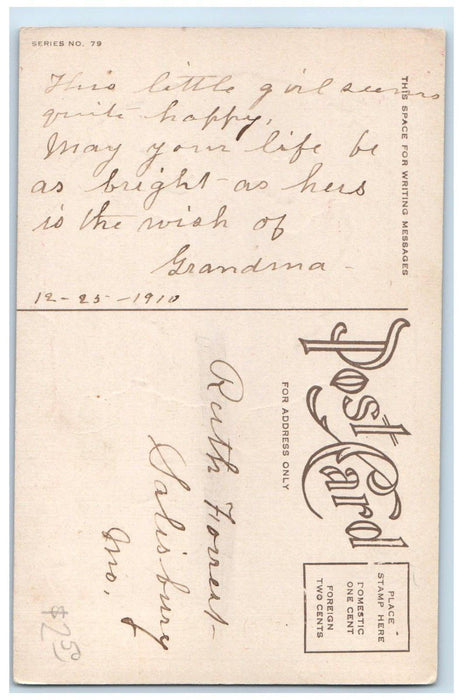 SERIES NO. 79
This little girl seems
quite happy,
May your life be
as bright as hers
is the wish of
Grandma -
12-25-1910
THIS SPACE FOR WRITING MESSAGES
Post Card
FOR ADDRESS ONLY
Ruth Forrest
Salisbury
Mo.
PLACE
STAMP HERE
DOMESTIC
ONE CENT
FOREIGN
TWO CENTS
$2.50